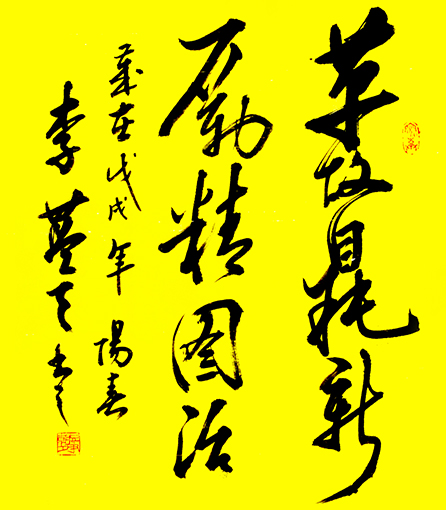 革故鼎新
励精图治
歲在戊戌年陽春
李天书